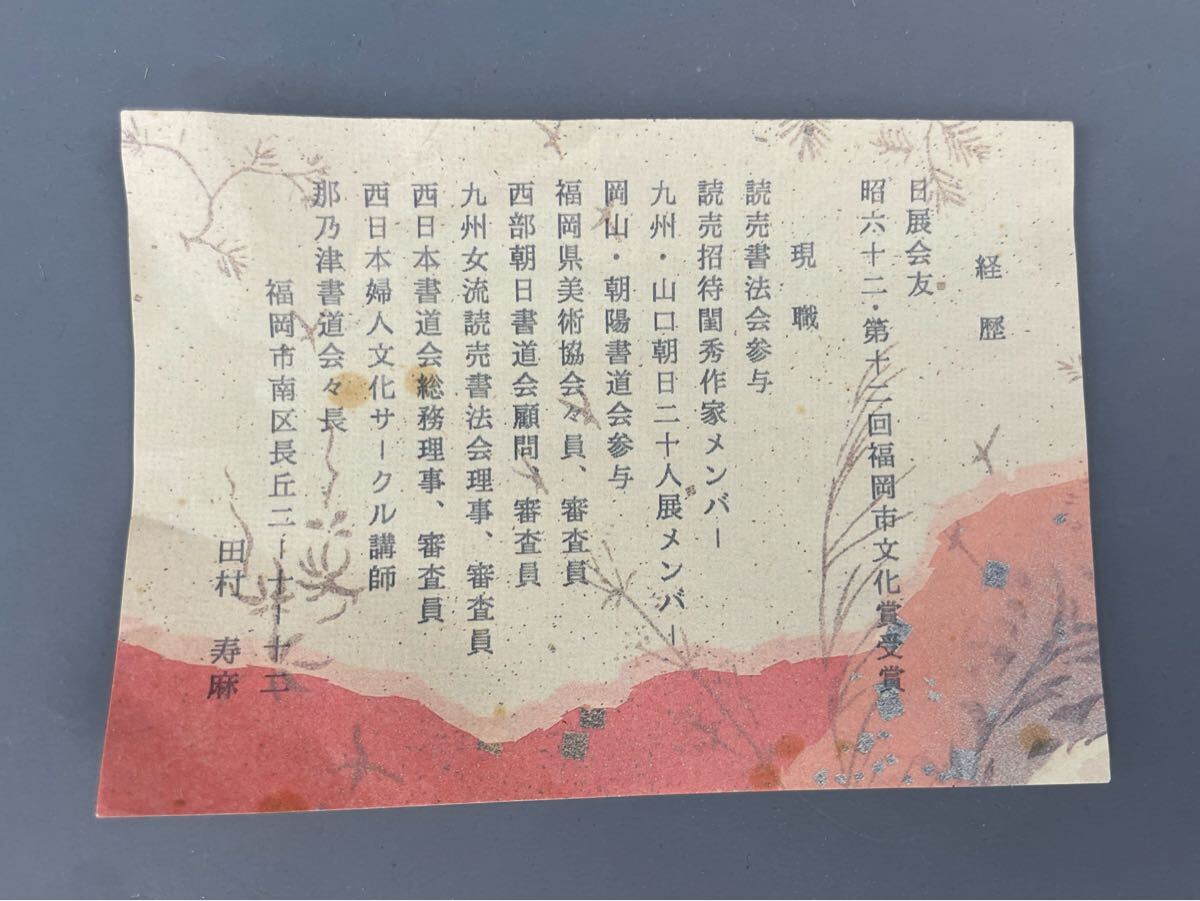 経歴
日展会友
昭六十二・第十二回福岡市文化賞受賞
現職
読売書法会参与
読売招待閨秀作家メンバー
九州・山口朝日二十人展メンバー
岡山・朝陽書道会参与
福岡県美術協会々員、審査員
西部朝日書道会顧問、審査員
九州女流読売書法会理事、審査員
西日本書道会総務理事、審査員
西日本婦人文化サークル講師
那乃津書道会々長
福岡市南区長丘二
田村 寿麻